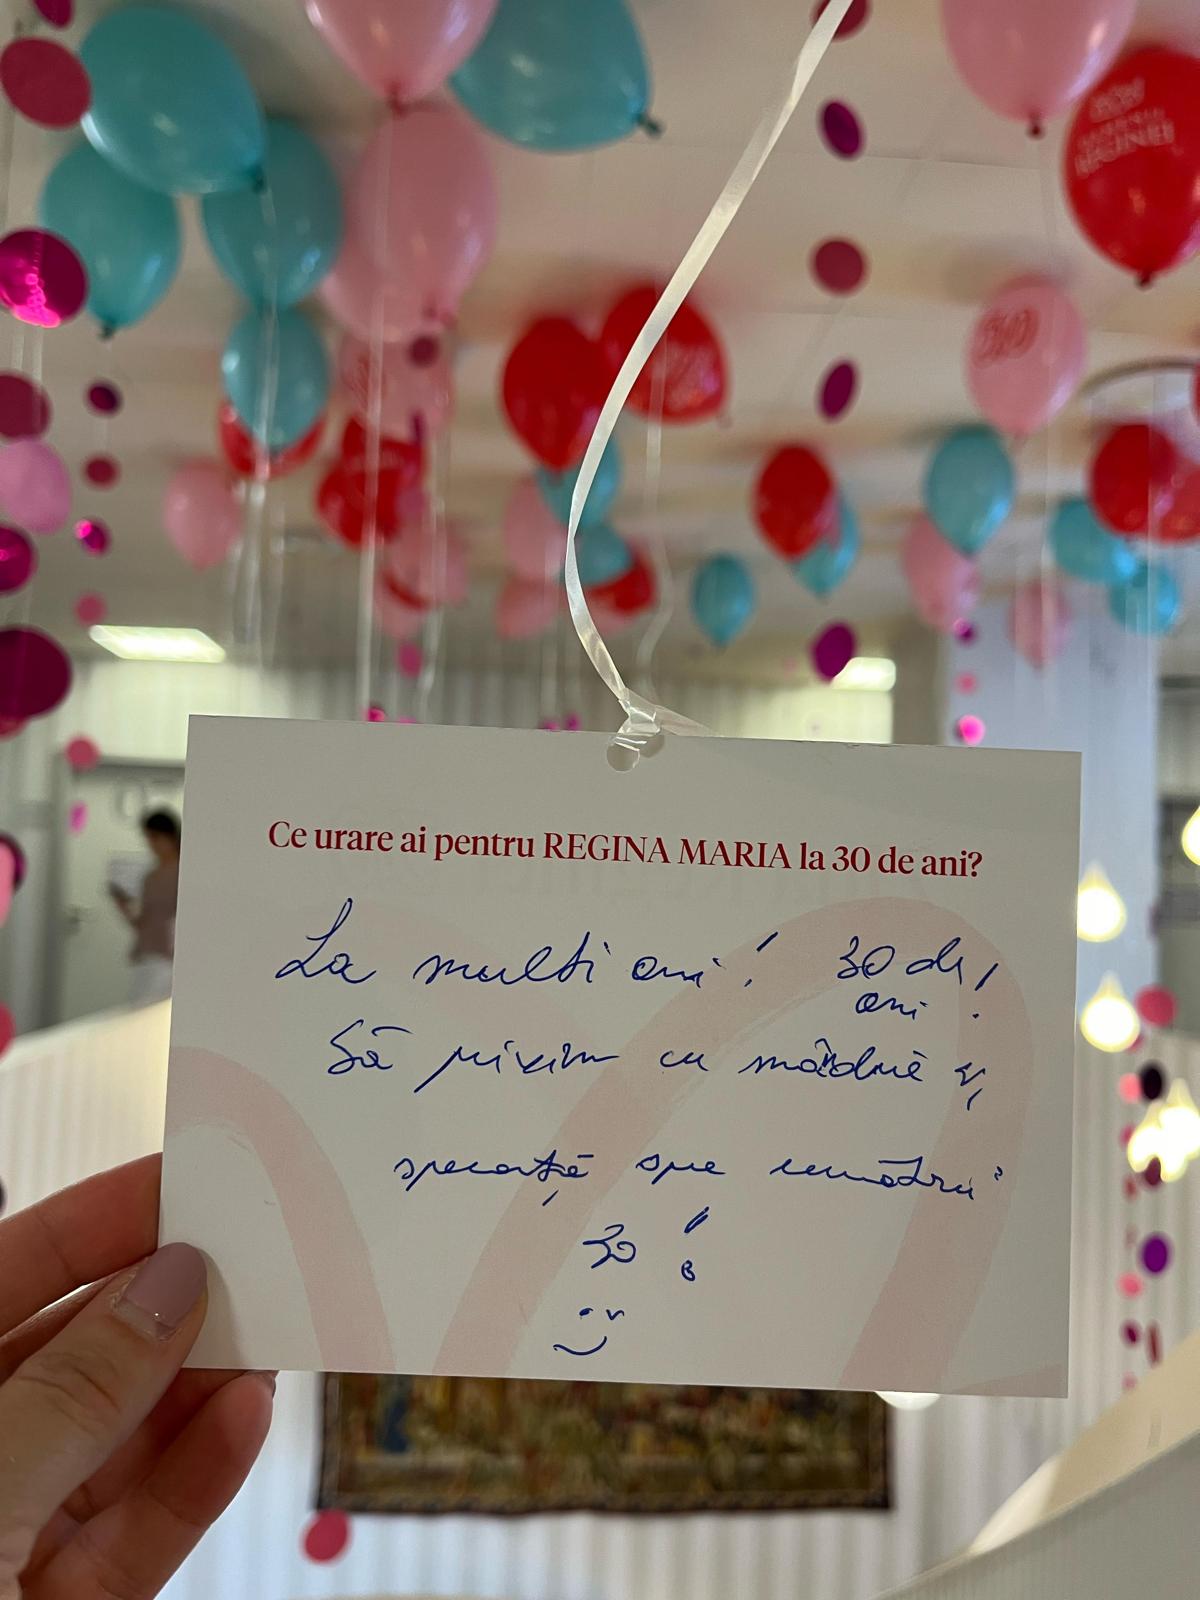 Ce urare ai pentru REGINA MARIA la 30 de ani?
La multi ani! 30 de
ani!
Să privim cu mândrie și
speranță spre următorii
30!
30
REGINEI